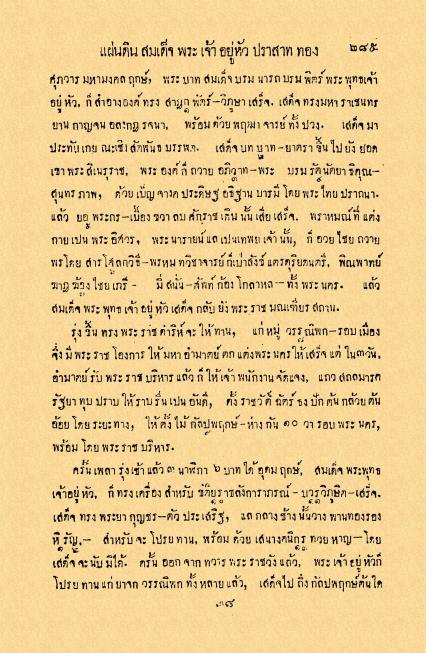 แผ่นดิน สมเด็จ พระ เจ้า อยู่หัว ปราสาท ทอง ๒๘๕
ศุภวาร มหามงคล ฤกษ์, พระ บาท สมเด็จ บรม นารถ บรม พิตร์ พระ พุทธเจ้า
อยู่ หัว, ก็ สำอางองค์ ทรง พัตร์–วิภูษา เสร็จ. เสด็จ ทรงมหา ราชนทร
ยาน กาญจน อลงกฏ รจนา, พร้อม ด้วย พฤฒา จารย์ ทั้ง ปวง. เสด็จ มา
ประทับ เกย ณะเชิง สัตพันธ บรรพต. เสด็จ บท บาท–ยาตรา ขึ้น ไป ยัง ยอด
เขา พระ สิเนรุราช, พระ องค์ ก็ ถวาย อภิวาท–พระ บรม รัตนัตยา ธิคุณ–
สุนทร ภาพ, ด้วย เบ็ญ จางค ประดิษฐ อธิฐาน บารมี โดย พระ ไทย ปราถนา.
แล้ว พระกร–เบื้อง ขวา ลบ ศักราช เดิม นั้น เสีย เสร็จ. พราหมณ์ ที่ แต่ง
กาย เปน พระ อิศวร, พระ นารายน์ แล เปนเทพย เจ้า นั้น, ก็ อวย ไชย ถวาย
พรโดย สาร โสลกวิธี–พรหม ทวิชาจารย์ ก็เป่าสังข์ แตรดุริยดนตรี, พิณพาทย์
ฆาฏ ฆ้อง ไชย เภรี– มี สนั่น–ศัพท์ ก้อง โกลาหล–ทั้ง พระ นคร. แล้ว
สมเด็จ พระ พุทธ เจ้า อยู่ หัว เสด็จ กลับ ยัง พระ ราช มณเฑียร สถาน.
รุ่ง ขึ้น ทรง พระ ราช ดำริห์ จะ ให้ ทาน, แก่ หมู่ วรรณิพก–รอบ เมือง
จึ่ง มี พระ ราช โองการ ให้ มหา อำมาตย์ ตก แต่งพระ นคร ให้ เสร็จ แต่ ใน ๓วัน,
อำมาตย์ รับ พระ ราช บริหาร แล้ว ก็ ให้ เจ้า พนักงาน จัดแจง, แถว สถลมารค
รัถยา ทุบ ปราบ ให้ ราบ รื่น เปน อันดี, ตั้ง ราชวัติ ฉัตร์ ธง ปัก ต้น กล้วย ต้น
อ้อย โดย ระยะ ทาง, ให้ ตั้ง ไม้ กัลปพฤกษ์–ห่าง กัน ๑๐ วา รอบ พระ นคร,
พร้อม โดย พระ ราช บริหาร.
ครั้น เพลา รุ่ง เช้า แล้ว ๓ นาฬิกา ๖ บาท ได้ อุดม ฤกษ์, สมเด็จ พระพุทธ
เจ้าอยู่หัว, ก็ ทรงเครื่อง สำหรับ –เสร็จ.
เสด็จ ทรง พระยา กุญชร–ตัว ประเสริฐ, แล กลาง ช้าง นั้นวาง พานทองรอง
หิรัญ,– สำหรับ จะ โปรย ทาน, พร้อม ด้วย เสนางคนิกร ทวย หาญ–โดย
เสด็จ จะ นับ มิได้. ครั้น ออก จาก ทวาร พระ ราชวัง แล้ว, พระ เจ้า อยู่ หัวก็
โปรย ทาน แก่ ยาจก วรรณิพก ทั้ง หลาย แล้ว, เสด็จ ไป ถึง กัลปพฤกษ์ต้นใด
๓๘